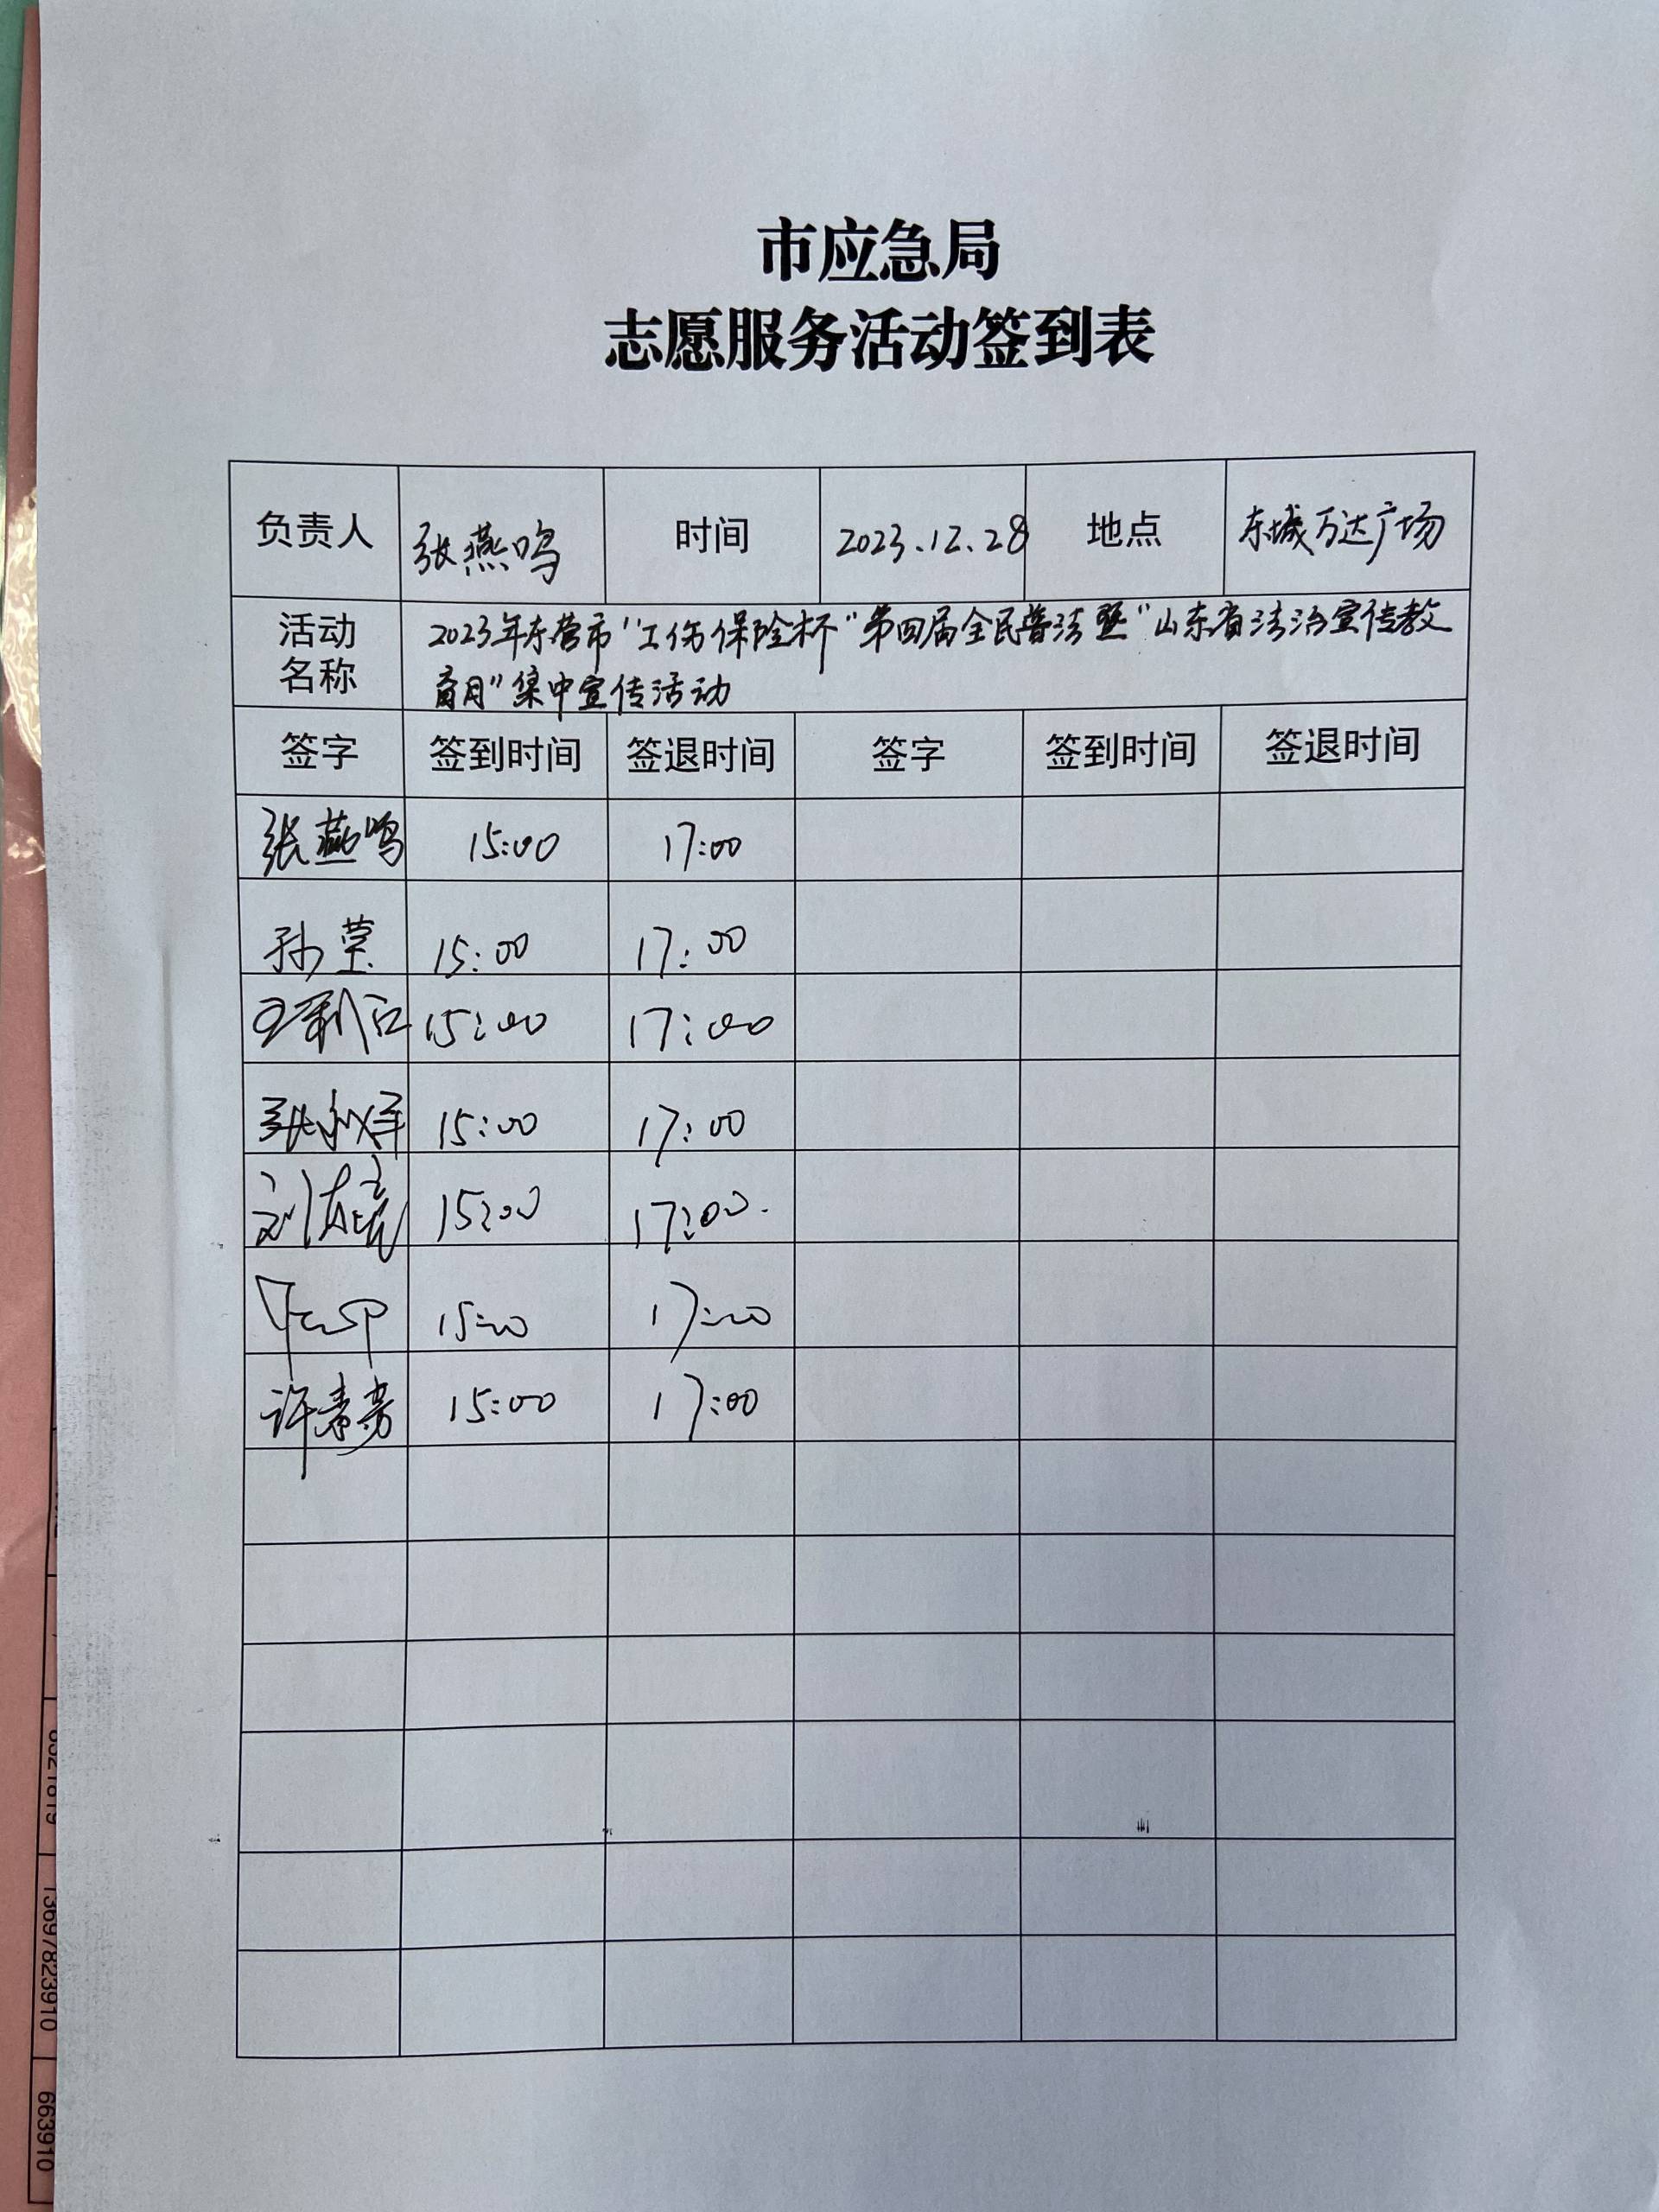 市应急局
志愿服务活动签到表
负责人 张燕鸣 时间 2023.12.28 地点 东城万达广场
活动名称 2023年东营市"工伤保险杯"第四届全民普法暨"山东省法治宣传教
育月"集中宣传活动
签字 签到时间 签退时间 签字 签到时间 签退时间
张燕鸣 15:00 17:00
孙莹 15:00 17:00
15:00 17:00
15:00 17:00
15:00 17:00
15:00 17:00
许素芳 15:00 17:00
13697823910
663910